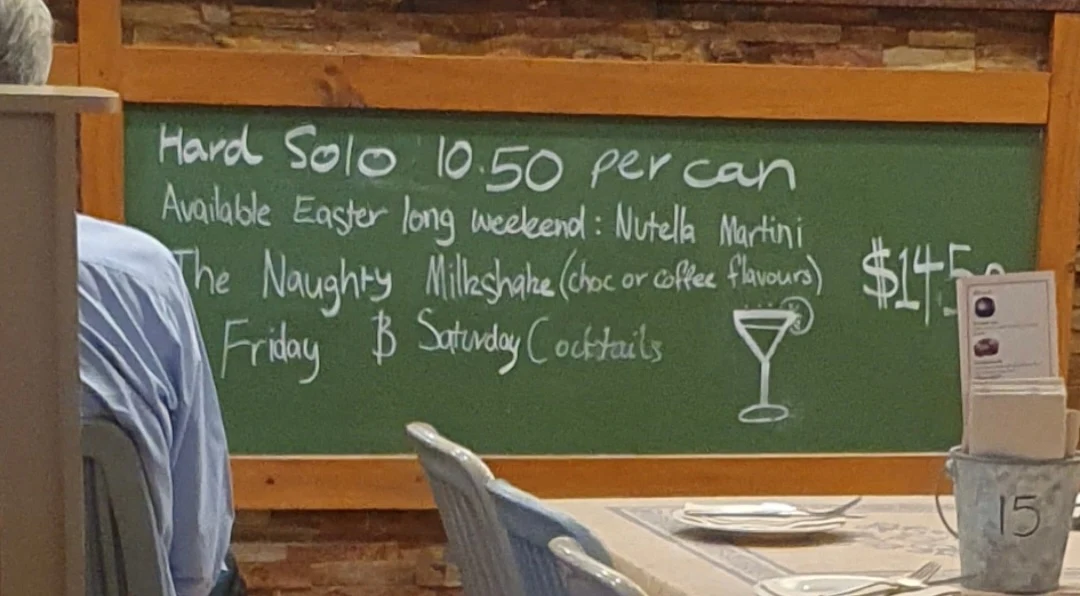 Hard Solo 10.50 per can
Available Easter long weekend: Nutella Martini
The Naughty Milkshake (choc or coffee flavours) $14.50
Friday & Saturday Cocktails
15